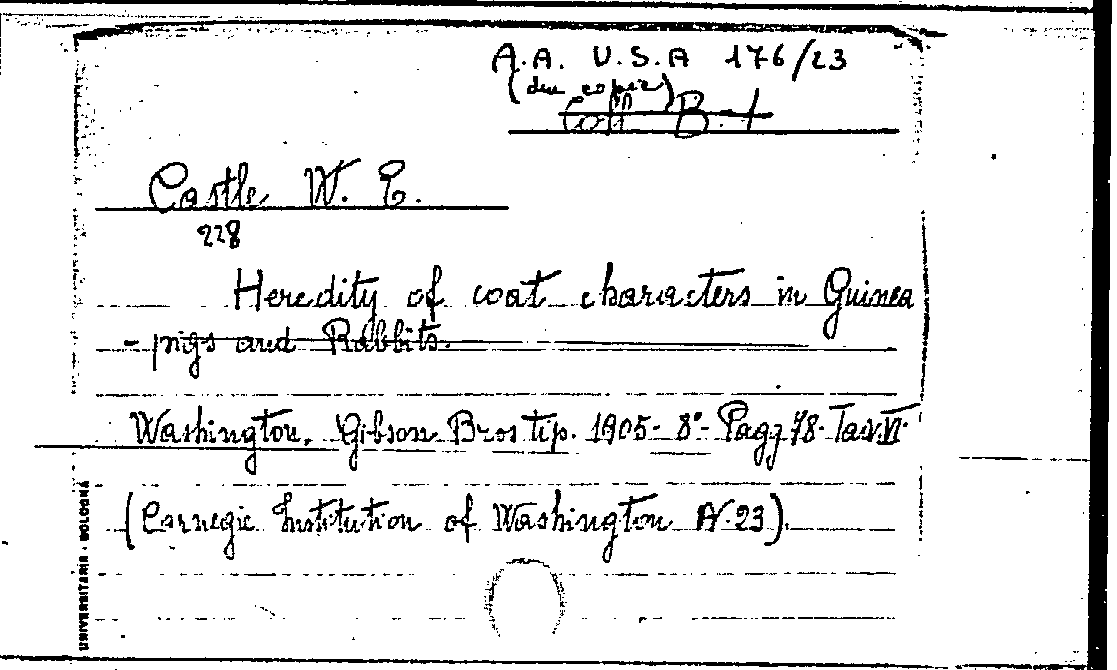 A.A. U.S.A 176/23
(due copie)
Coll. B. 1
Castle, W. E.
228
Heredity of coat characters in Guinea
- pigs and Rabbits.
Washington, Gibson Bros tip. 1905 - 8° - Pagg 78 - Tav. VI.
(Carnegie Institution of Washington N. 23).
UNIVERSITARIA - BOLOGNA